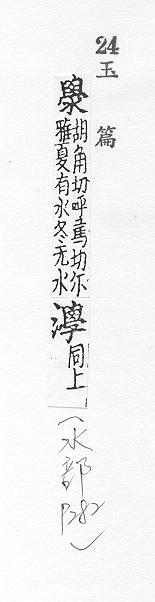 24
玉篇
澩
胡角切呼篤切尔
雅夏有水冬无水
㶅
同上
(水部
P282)